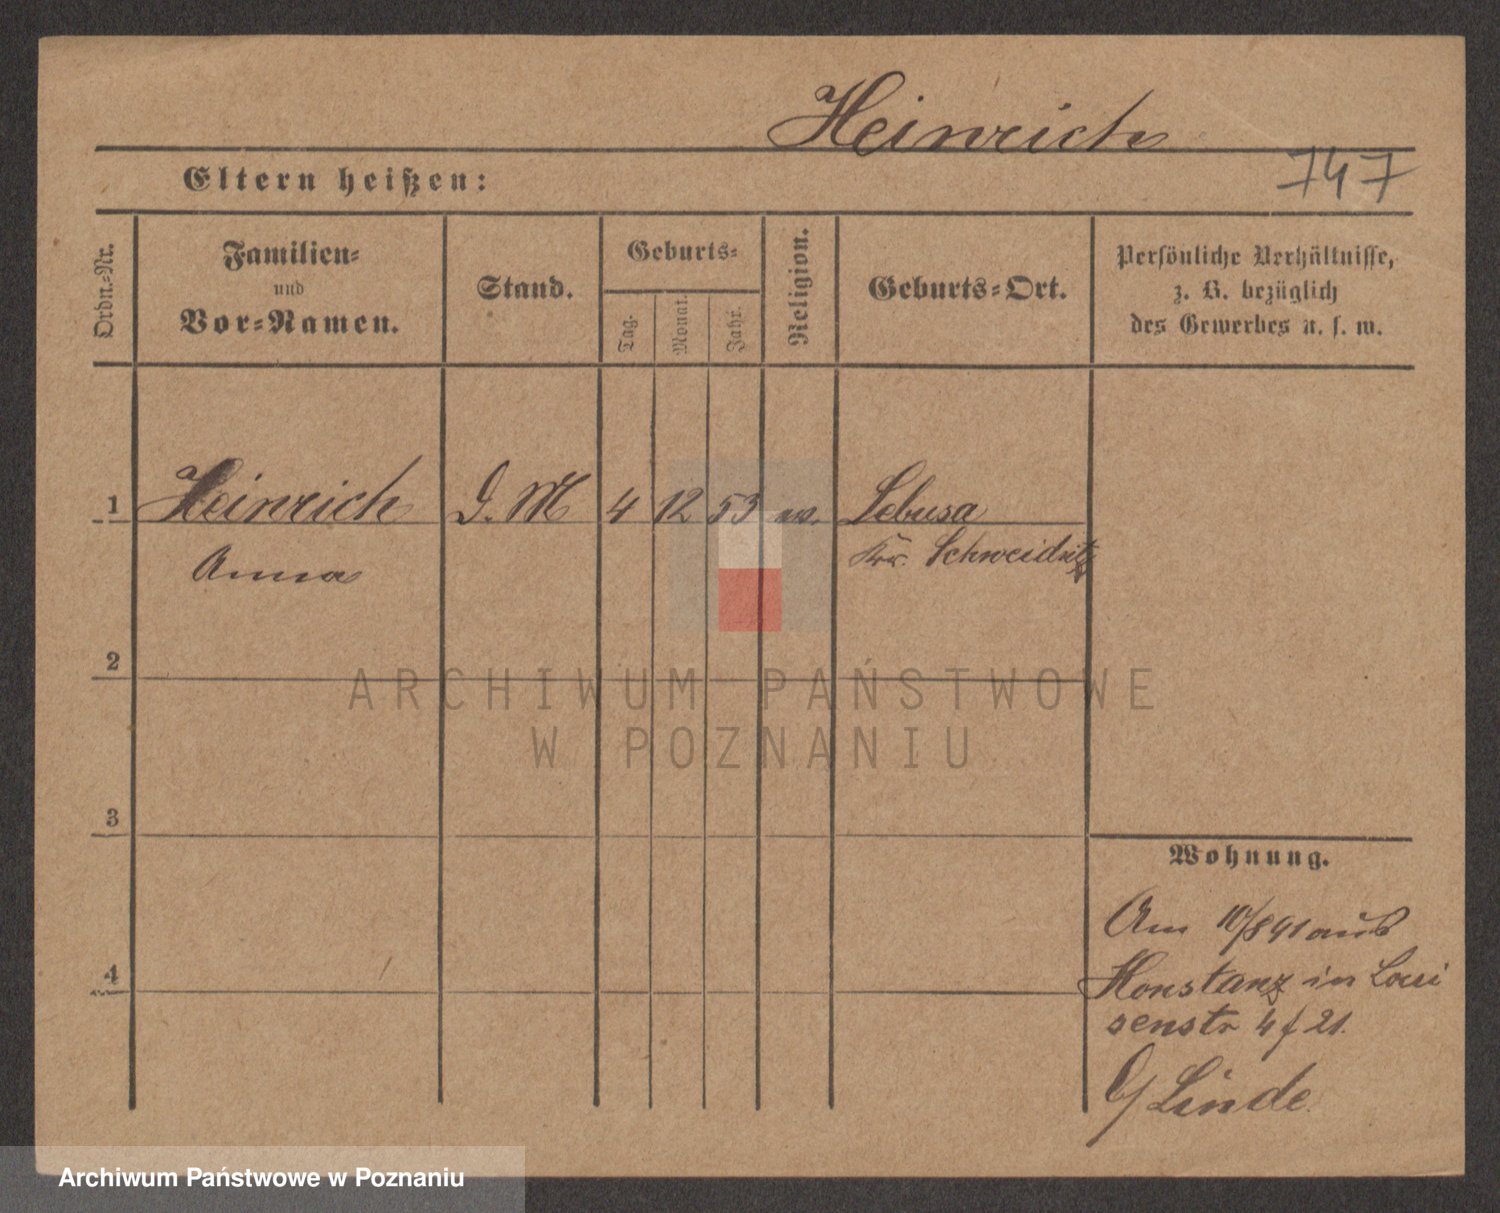 Heinrich
747
Eltern heißen:
Ordn.-Nr.
Familien-
und
Vor-Namen.
Stand.
Geburts-
Tag.
Monat.
Jahr.
Religion.
Geburts-Ort.
Persönliche Verhältnisse,
z. B. bezüglich
des Gewerbes u. s. w.
1 Heinrich D. M 4 12 53 Lebusa
Anna Kr. Schweidnitz
2
3
4
Wohnung.
Am 10/8 91 aus
Konstanz in Loui
senstr 4 f 21.
Linde
ARCHIWUM PAŃSTWOWE
W POZNANIU
Archiwum Państwowe w Poznaniu